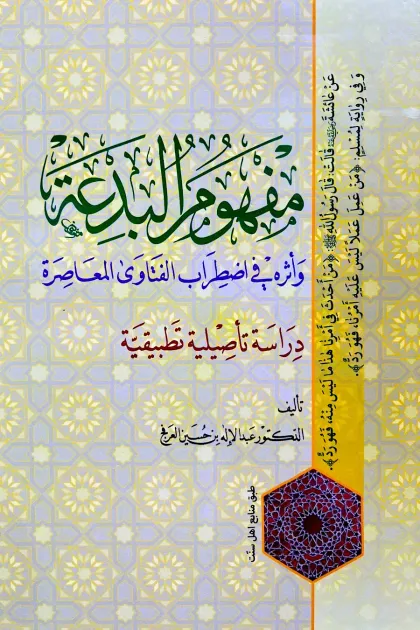 مَفْهُومُ الْبِدْعَةِ
وَأثره في اضطِراب الفَتاوىٰ المعَاصِرَة
دِرَاسَة تأصِيلية تَطبيقيَّة
تأليف
الدكتور عَبد الإله بن حُسَين العَرفَج
عَنْ عَائِشَةَ رضي الله عنها قَالَتْ: قَالَ رَسُولُ اللهِ ﷺ: ﴿مَنْ أَحْدَثَ فِي أَمْرِنَا هٰذَا مَا لَيْسَ مِنْهُ، فَهُوَ رَدٌّ﴾.
وَفِي رِوَايَةٍ لِمُسْلِمٍ: ﴿مَنْ عَمِلَ عَمَلًا لَيْسَ عَلَيْهِ أَمْرُنَا، فَهُوَ رَدٌّ﴾.
طبق منابع اهل سنّت